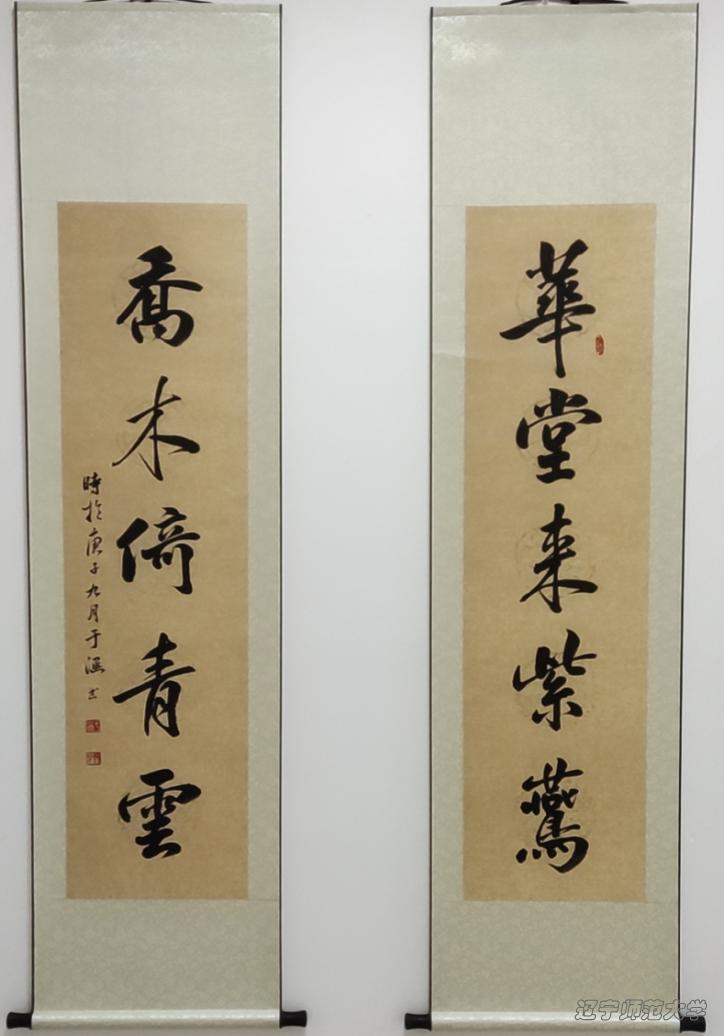 華堂来紫鷰
喬木倚青雲
時於庚子九月于涵书
辽宁师范大学